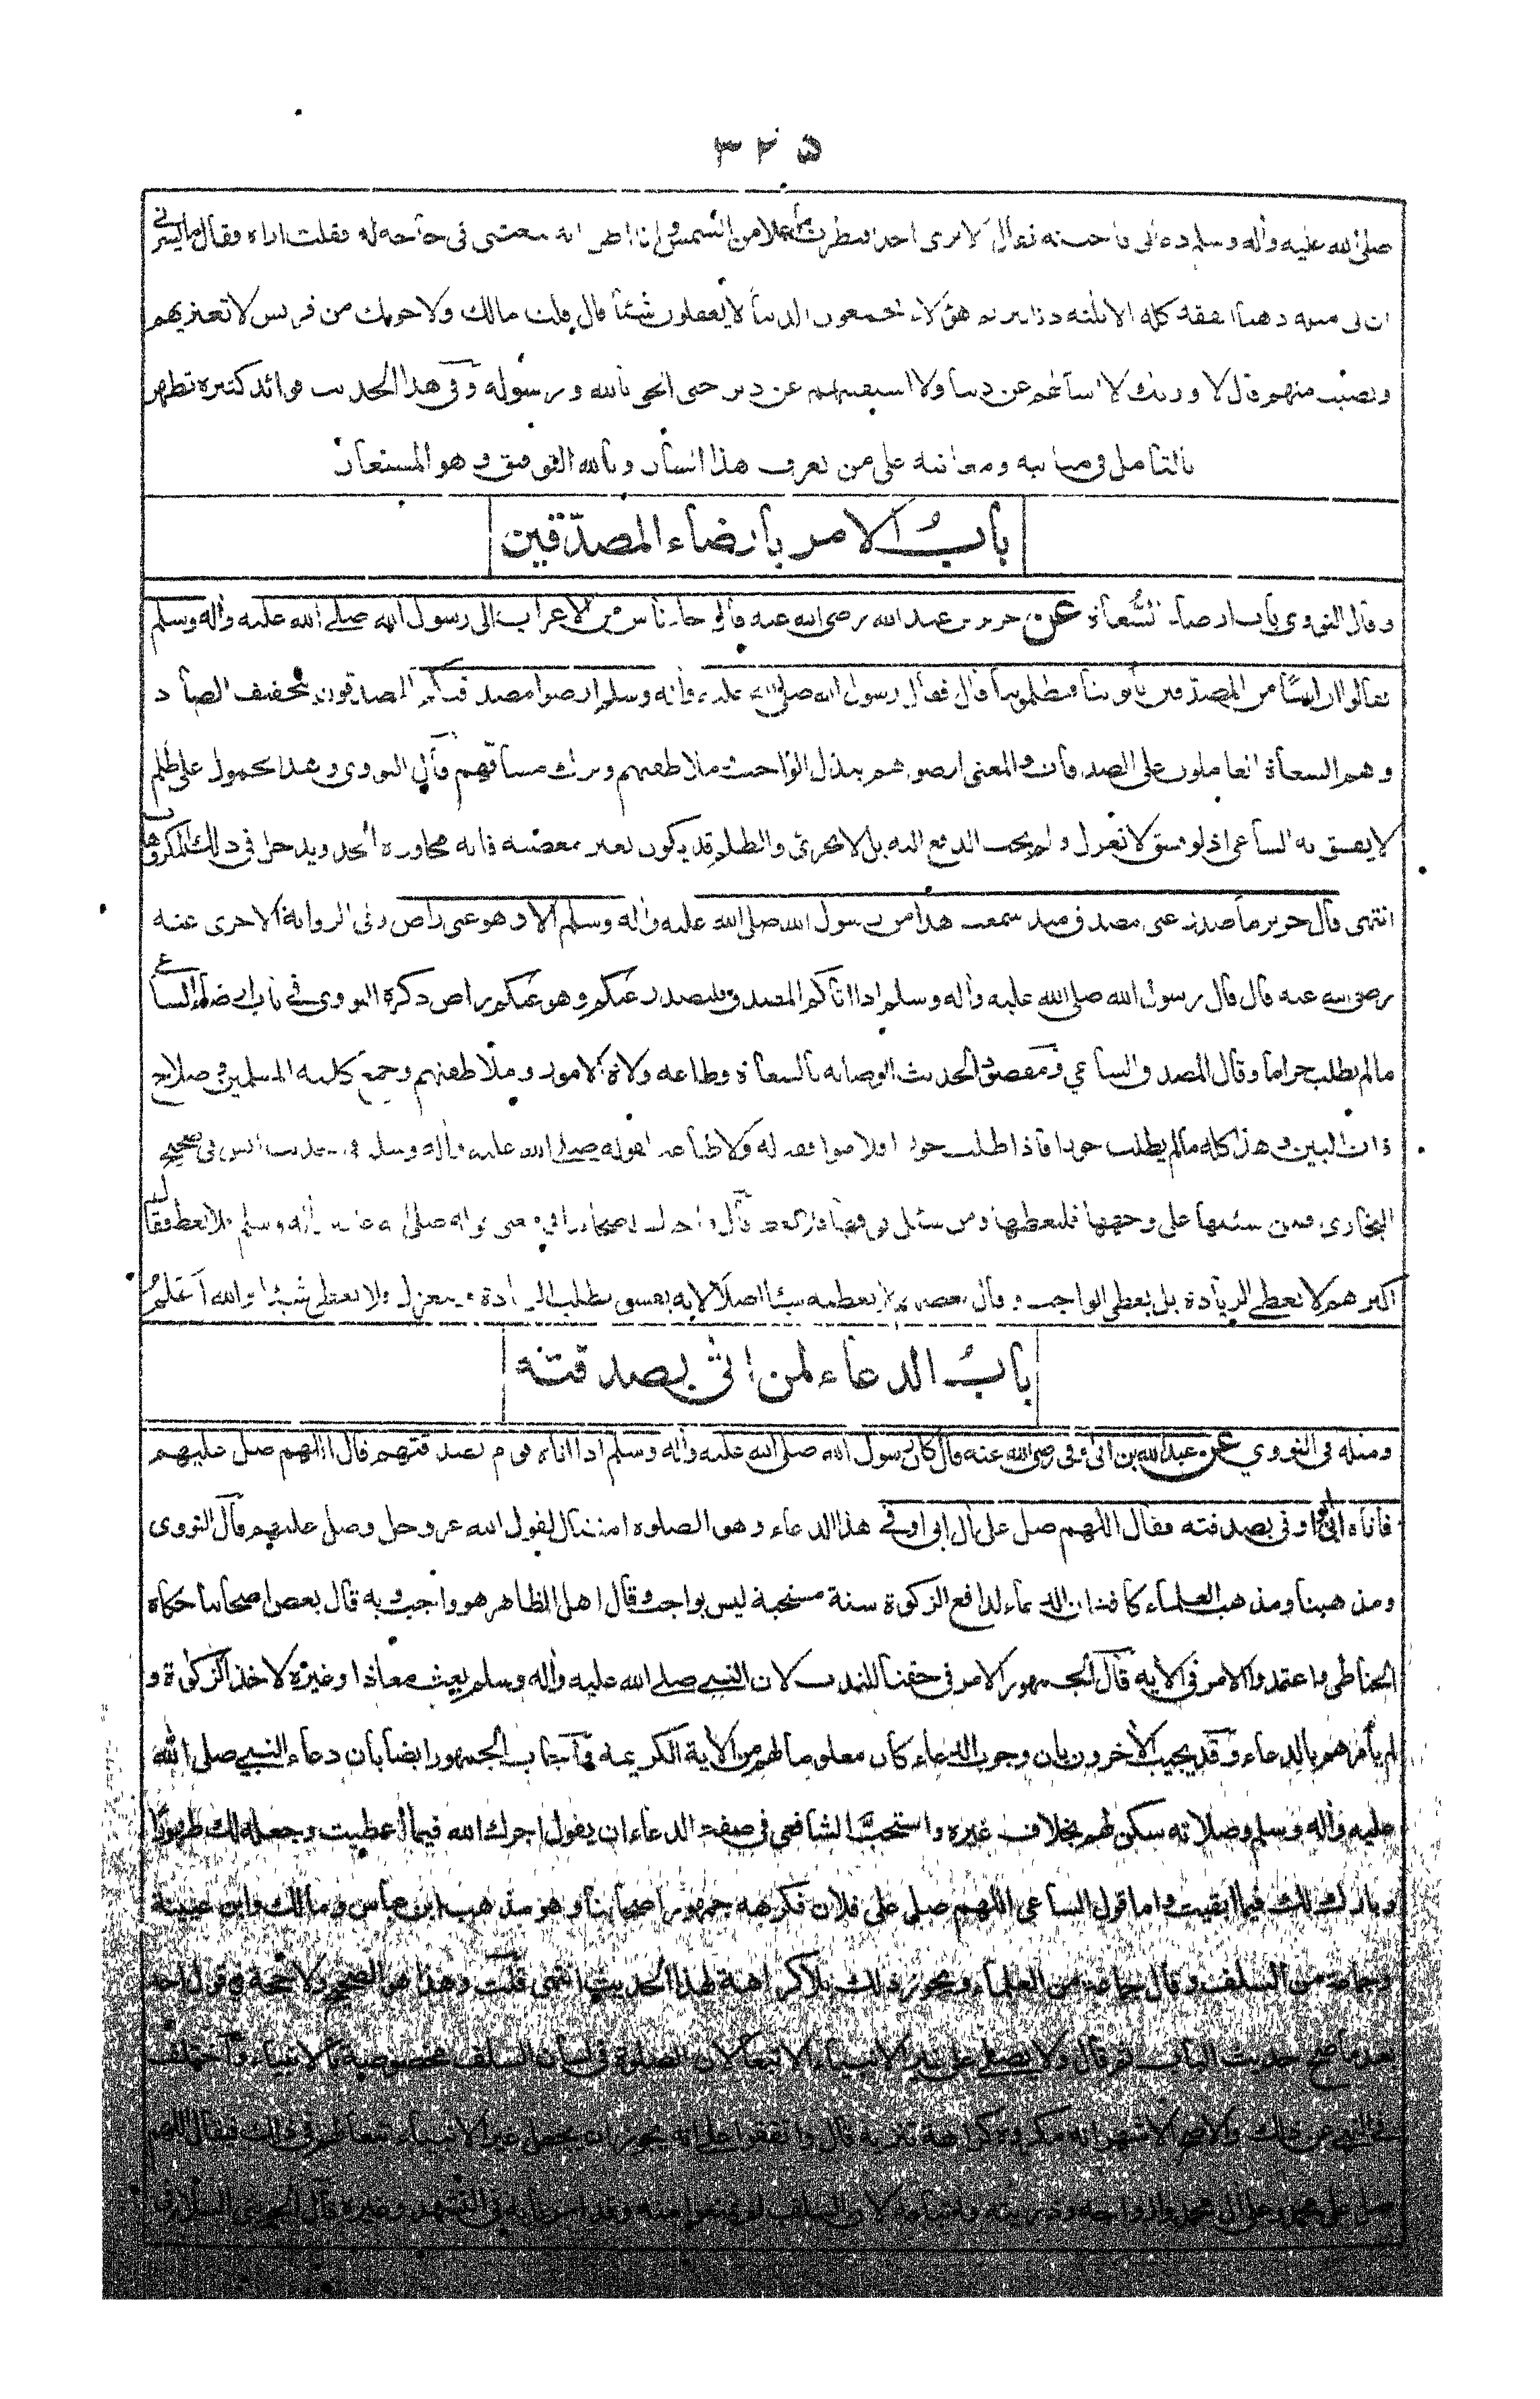 ٣٢٥
صلى الله عليه وأله وسلم دعانى فاجبته فقال اترى احدا فنظرت ما علا من الشمس وانا اظن انه يبعثنى فى حاجة له فقلت اراه فقال ما يسرنى
ان لى مثله ذهبا انفقه كله الا ثلثة دنانير ثم هؤلاء يجمعون الدنيا لا يعقلون شيئا قال قلت مالك ولاخوتك من قريش لا تعتريهم
وتصيب منهم قال لا وربك لا اسألهم عن دنيا ولا استفتيهم عن دين حتى الحق بالله ورسوله وفى هذا الحديث فوائد كثيرة تظهر
بالتامل فى مبانيه ومعانيه على من يعرف هذا الشأن وبالله التوفيق وهو المستعان
باب الامر بارضاء المصدّقين
وقال النووى باب ارضاء السُّعاة عن جرير بن عبد الله رضى الله عنه قال جاء ناس من الاعراب الى رسول الله صلے الله عليه وأله وسلم
فقالوا ان ناسًا من المصدقين يأتوننا فيظلموننا قال فقال رسول الله صلى الله عليه وأله وسلم ارضوا مصدقيكم المصدقون بتخفيف الصاد
وهم السعاة العاملون على الصدقات والمعنى ارضوهم ببذل الواجب وملاطفتهم وترك مشاقهم قال النووى وهذا محمول على ظلم
لا يفسق به الساعى اذ لو فسق لانعزل ولم يجب الدفع اليه بل لا يجزئ والظلم قد يكون بغير معصية فانه مجاوزة الحد ويدخل فى ذلك المكروهات
انتهى قال جرير ما صدر عنى مصدق منذ سمعت هذا من رسول الله صلى الله عليه وأله وسلم الا وهو عنى راض وفى الرواية الاخرى عنه
رضى الله عنه قال قال رسول الله صلى الله عليه وأله وسلم اذا اتاكم المصدق فليصدر عنكم وهو عنكم راض ذكره النووى فى باب ارضاء الساعى
مالم يطلب حراما وقال المصدق الساعي ومقصود الحديث الوصاية بالسعاة وطاعة ولاة الامور وملاطفتهم وجمع كلمة المسلمين وصلاح
ذات البين وهذا كله مالم يطلب جورا فاذا طلب جورا فلا موافقة له ولا طاعة لقوله صلے الله عليه وأله وسلم فى حديث انس فى صحيح
البخارى فمن سئلها على وجهها فليعطها ومن سئل فوقها فلا يعط قال واختلف اصحابنا فى معنى قوله صلى الله عليه وأله وسلم فلا يعط فقال
اكثرهم لا يعطے الزيادة بل يعطى الواجب وقال بعضهم لا يعطيه شيئا اصلا لانه يفسق بطلب الزيادة وينعزل ولا يعطى شيئا والله اعلم
باب الدعاء لمن اتى بصدقته
ومثله فى النووي عن عبد الله بن ابى اوفى رضى الله عنه قال كان رسول الله صلى الله عليه وأله وسلم اذا اتاه قوم بصدقتهم قال اللهم صل عليهم
فاتاه ابى ابو اوفى بصدقته فقال اللهم صل على أل ابى اوفى هذا الدعاء وهو الصلوة امتثال لقول الله عز وجل وصل عليهم قال النووى
ومذهبنا ومذهب العلماء كافة ان الدعاء لدافع الزكوة سنة مستحبة ليس بواجب وقال اهل الظاهر هو واجب وبه قال بعض اصحابنا حكاه
الحناطى واعتمدوا الامر فى الأية قال الجمهور الامر فى حقنا للندب لان النبي صلے الله عليه وأله وسلم بعث معاذا وغيره لاخذ الزكوة و
لم يأمرهم بالدعاء وقد يجيب الأخرون بان وجوب الدعاء كان معلوما لهم من الأية الكريمة واجاب الجمهور ايضا بان دعاء النبي صلى الله
عليه وأله وسلم وصلاته سكن لهم بخلاف غيره واستحبّ الشافعى فى صفة الدعاء ان يقول اجرك الله فيما اعطيت وجعله لك طهورًا
وبارك لك فيما ابقيت واما قول الساعى اللهم صل على فلان فكرهه جمهور اصحابنا وهو مذهب ابن عباس ومالك وابن عيينة
وجماعة من السلف وقال جماعة من العلماء ويجوز ذلك بلا كراهة لهذا الحديث انتهى قلت وهذا هو الصحيح ولا حجة فى قول احد
بعد ما صح حديث الباب ثم قال ولا يصلى على غير الانبياء الا تبعا لان الصلوة فى لسان السلف مخصوصة بالانبياء واختلف
فى النهى عن ذلك والاصح الاشهر انه مكروه كراهة تنزيه قال واتفقوا على انه يجوز ان يجعل غير الانبياء تبعا لهم فى ذلك فيقال اللهم
صل على محمد وعلى أل محمد وازواجه وذريته واتباعه لان السلف لم يمنعوا منه وقد امرنا به فى التشهد وغيره قال الجوينى السلام فى